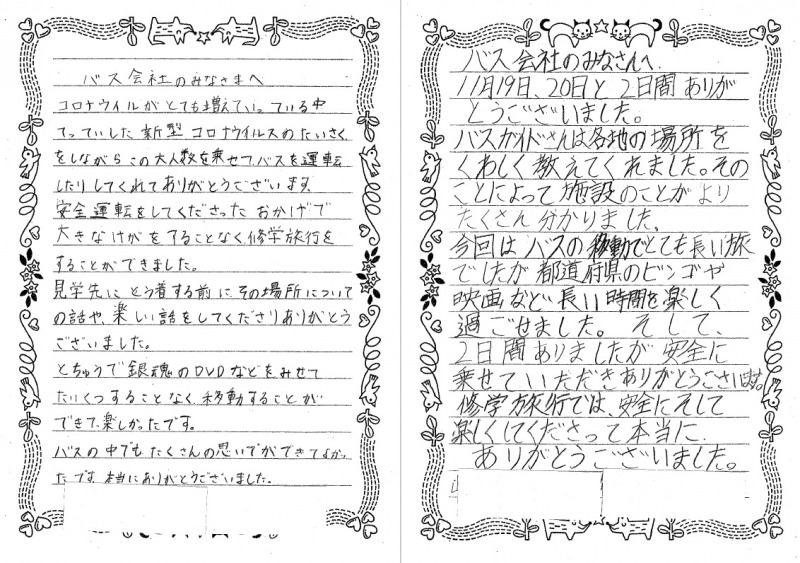 バス会社のみなさまへ
コロナウイルがとても増えていっている中
てっていした新型コロナウイルスのたいさく
をしながらこの大人数を乗せてバスを運転
したりしてくれてありがとうございます。
安全運転をしてくださったおかげで
大きなけがをすることなく修学旅行を
することができました。
見学先にとう着する前に、その場所について
の話や、楽しい話をしてくださりありがとう
ございました。
とちゅうで銀魂のDVDなどをみせて
たいくつすることなく、移動することが
できて、楽しかったです。
バスの中でもたくさんの思いでができてよかっ
たです。本当にありがとうございました。
バス会社のみなさんへ
11月19日、20日と2日間ありが
とうございました。
バスガイドさんは各地の場所を
くわしく教えてくれました。その
ことによって施設のことがより
たくさん分かりました、
今回はバスの移動でとても長い旅
でしたが都道府県のビンゴや
映画など長い時間を楽しく
過ごせました。そして、
2日間ありましたが安全に
乗せていただきありがとうございます。
修学旅行では、安全にそして
楽しくしてくださって本当に
ありがとうございました。